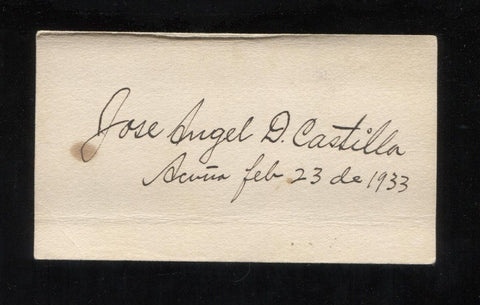 Jose Angel D. Castilla
Acuña feb 23 de 1933